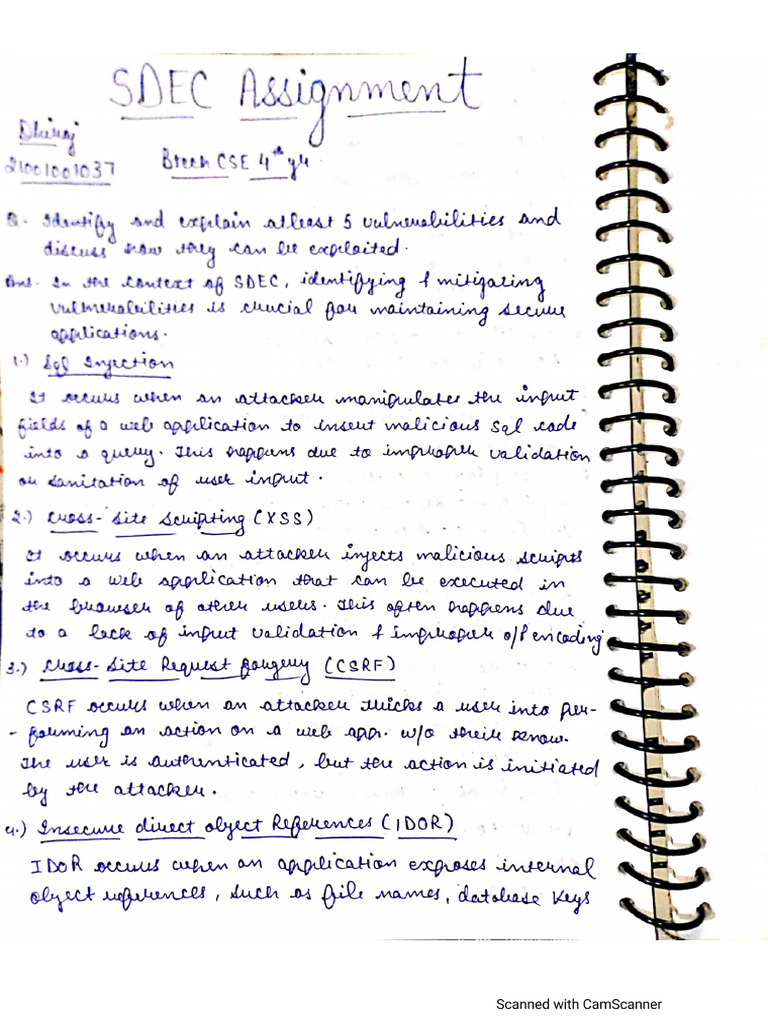 SDEC Assignment
Dhiraj
21001001037 Btech CSE 4th yr.
Q. Identify and explain atleast 5 vulnerabilities and
discuss how they can be exploited.
Ans. In the context of SDEC, identifying & mitigating
vulnerabilities is crucial for maintaining secure
applications.
1.) Sql Injection
It occurs when an attacker manipulates the input
fields of a web application to insert malicious Sql code
into a query. This happens due to improper validation
or sanitation of user input.
2.) Cross-Site Scripting (XSS)
It occurs when an attacker injects malicious scripts
into a web application that can be executed in
the browser of other users. This often happens due
to a lack of input validation & improper o/p encoding
3.) Cross-Site Request forgery (CSRF)
CSRF occurs when an attacker tricks a user into per-
-forming an action on a web app. w/o their know.
The user is authenticated, but the action is initiated
by the attacker.
4.) Insecure direct object References (IDOR)
IDOR occurs when an application exposes internal
object references, such as file names, database keys
Scanned with CamScanner